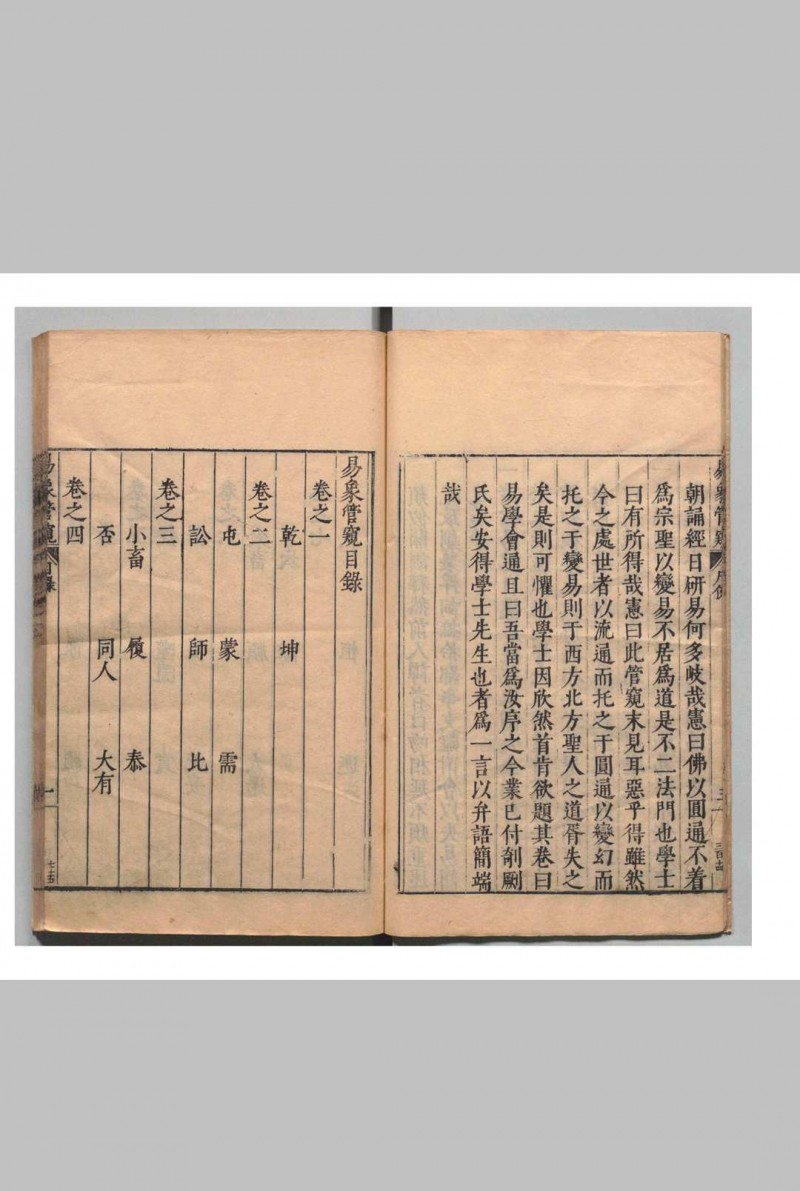 朝誦經日研易何多岐哉憲曰佛以圓通不着
爲宗聖以變易不居爲道是不二法門也學士
曰有所得哉憲曰此管窺末見耳惡乎得雖然
今之處世者以流通而托之于圓通以變幻而
托之于變易則于西方北方聖人之道胥失之
矣是則可懼也學士因欣然首肯欲題其卷曰
易學會通且曰吾當爲汝序之今業已付剞劂
氏矣安得學士先生也者爲一言以弁語簡端
哉
易象管窺目錄
卷之一
乾 坤
卷之二
屯 蒙 需
訟 師 比
卷之三
小畜 履 泰
否 同人 大有
卷之四
易象管窺 目錄